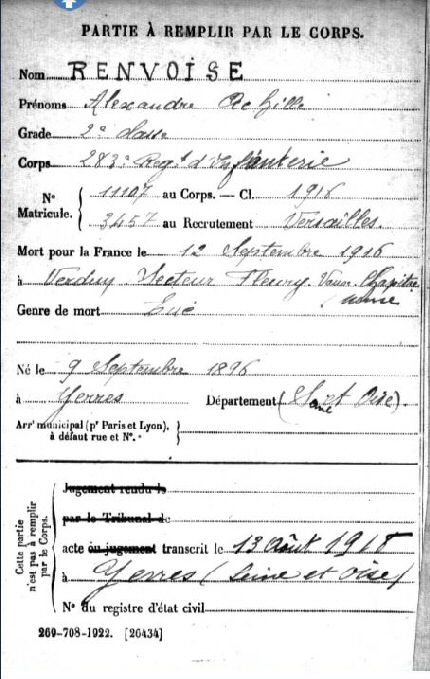 PARTIE À REMPLIR PAR LE CORPS.
Nom RENVOISE
Prénoms Alexandre Achille
Grade 2e classe
Corps 283e Régt d'Infanterie
N° Matricule. { 11107 au Corps. — Cl. 1916
3457 au Recrutement Versailles.
Mort pour la France le 12 Septembre 1916
à Verdun Secteur Fleury Vaux Chapitre
Meuse
Genre de mort Tué
Né le 9 Septembre 1896
à Yerres Département (Seine et Oise).
Arrt municipal (pr Paris et Lyon), à défaut rue et N°. }
Cette partie n'est pas à remplir par le Corps.
Jugement rendu le
par le Tribunal de
acte ou jugement transcrit le 13 Août 1918
à Yerres (Seine et Oise)
N° du registre d'état civil
269-708-1922. [26434]